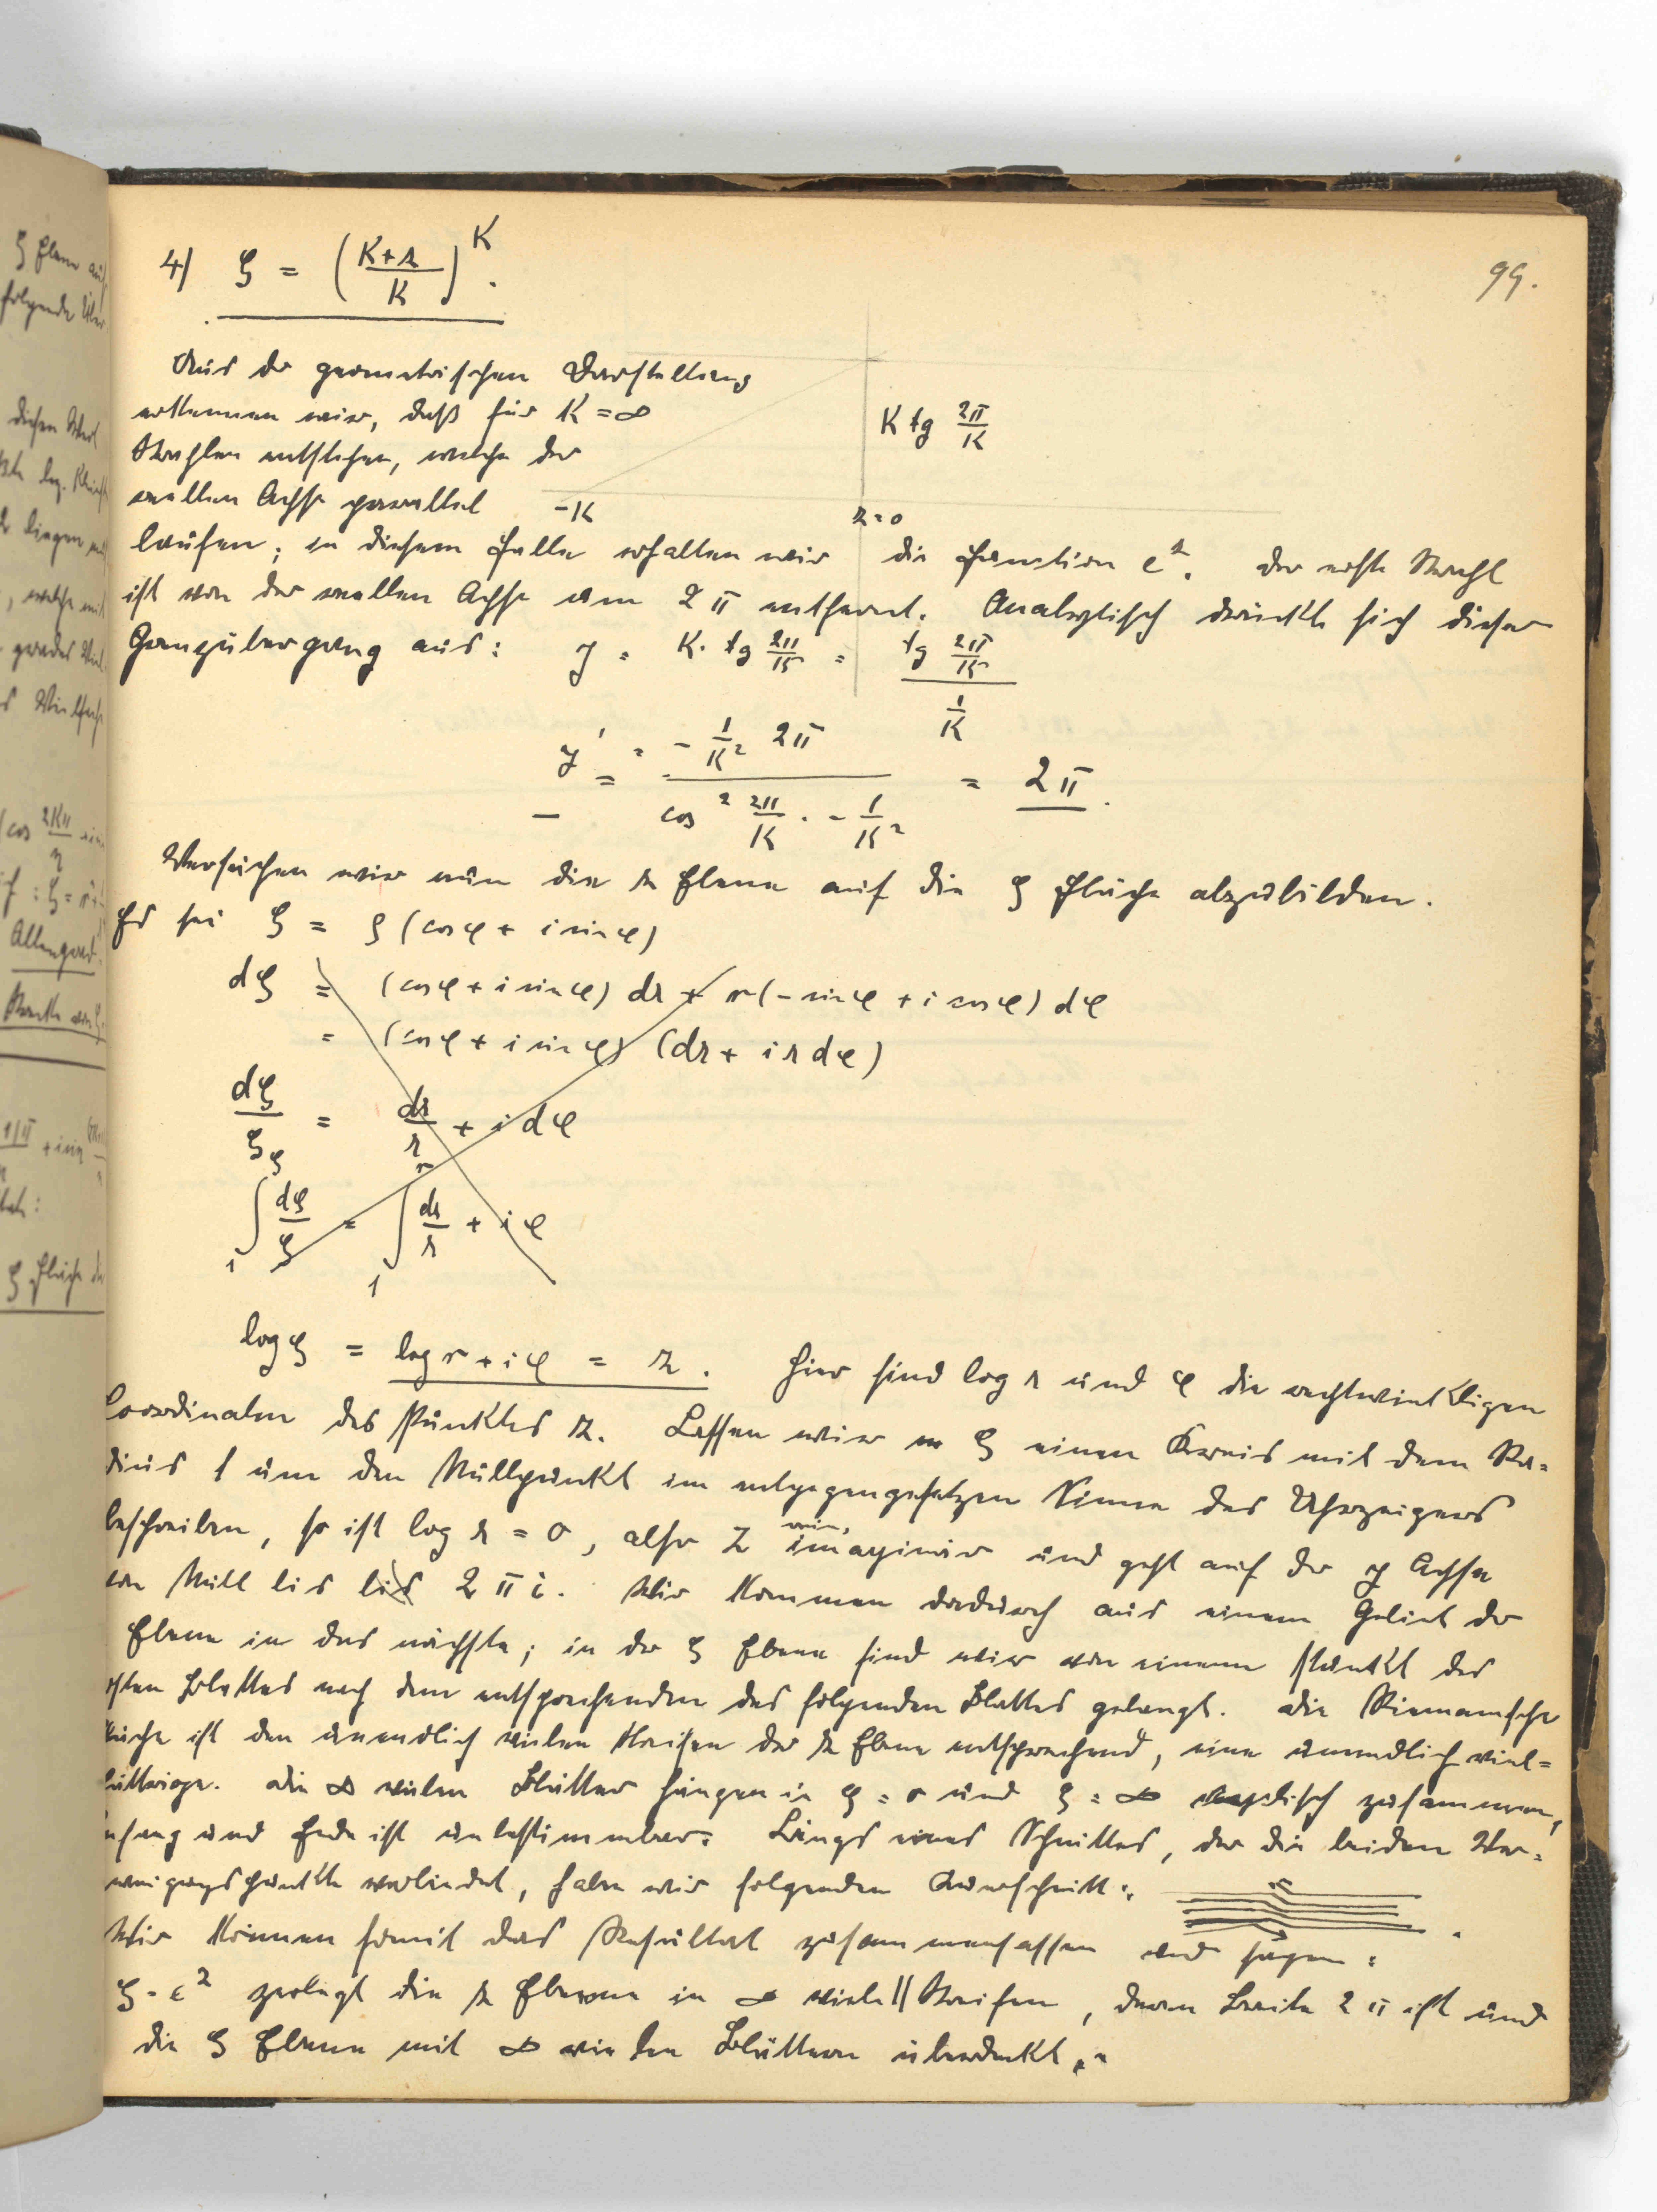 99.
4) ζ = (K+z / K)^K.
Aus der geometrischen Darstellung
erkennen wir, daß für K = ∞
Strahlen entstehen, welche der
reellen Achse parallel
K tg 2π/K
-K
z = 0
laufen; in diesem Falle erhalten wir die Function e^z. Der erste Strahl
ist von der reellen Achse um 2π entfernt. Analytisch drückt sich dieser
Grenzübergang aus: y = K · tg 2π/K = tg 2π/K / 1/K
y' = - 1/K² 2π / cos² 2π/K · - 1/K² = 2π.
Versuchen wir nun die z Ebene auf die ζ Fläche abzubilden.
Es sei ζ = ρ (cos φ + i sin φ)
dζ = (cos φ + i sin φ) dr + r (- sin φ + i cos φ) dφ
= (cos φ + i sin φ) (dr + i r dφ)
dζ/ζ = dr/r + i dφ
∫₁^ζ dζ/ζ = ∫₁^r dr/r + i φ
log ζ = log r + i φ = z. Hier sind log r und φ die rechtwinkligen
Coordinaten des Punktes z. Lassen wir ζ einen Kreis mit dem Ra=
dius 1 um den Nullpunkt im entgegengesetzen Sinne des Uhrzeigers
beschreiben, so ist log r = 0, also z rein imaginär und geht auf der y Achse
von Null bis 2πi. Wir kommen dadurch aus einem Gebiet der
Ebene in das nächste; in der ζ Ebene sind wir von einem Punkt des
ersten Blattes nach dem entsprechenden des folgenden Blattes gelangt. Die Riemannsche
Fläche ist den unendlich vielen Streifen der z Ebene entsprechend, eine unendlich viel=
blättrige. Die ∞ vielen Blätter hängen in ζ = 0 und ζ = ∞ zusammen,
Anfang und Ende ist unbestimmbar. Längs eines Schnittes, der die beiden Ver=
zweigungspunkte verbindet, haben wir folgenden Querschnitt:
Wir können somit das Resultat zusammenfassen und sagen:
ζ = e^z zerlegt die z Ebene in ∞ viele || Streifen, deren Breite 2π ist und
die ζ Ebene mit ∞ vielen Blättern überdeckt.